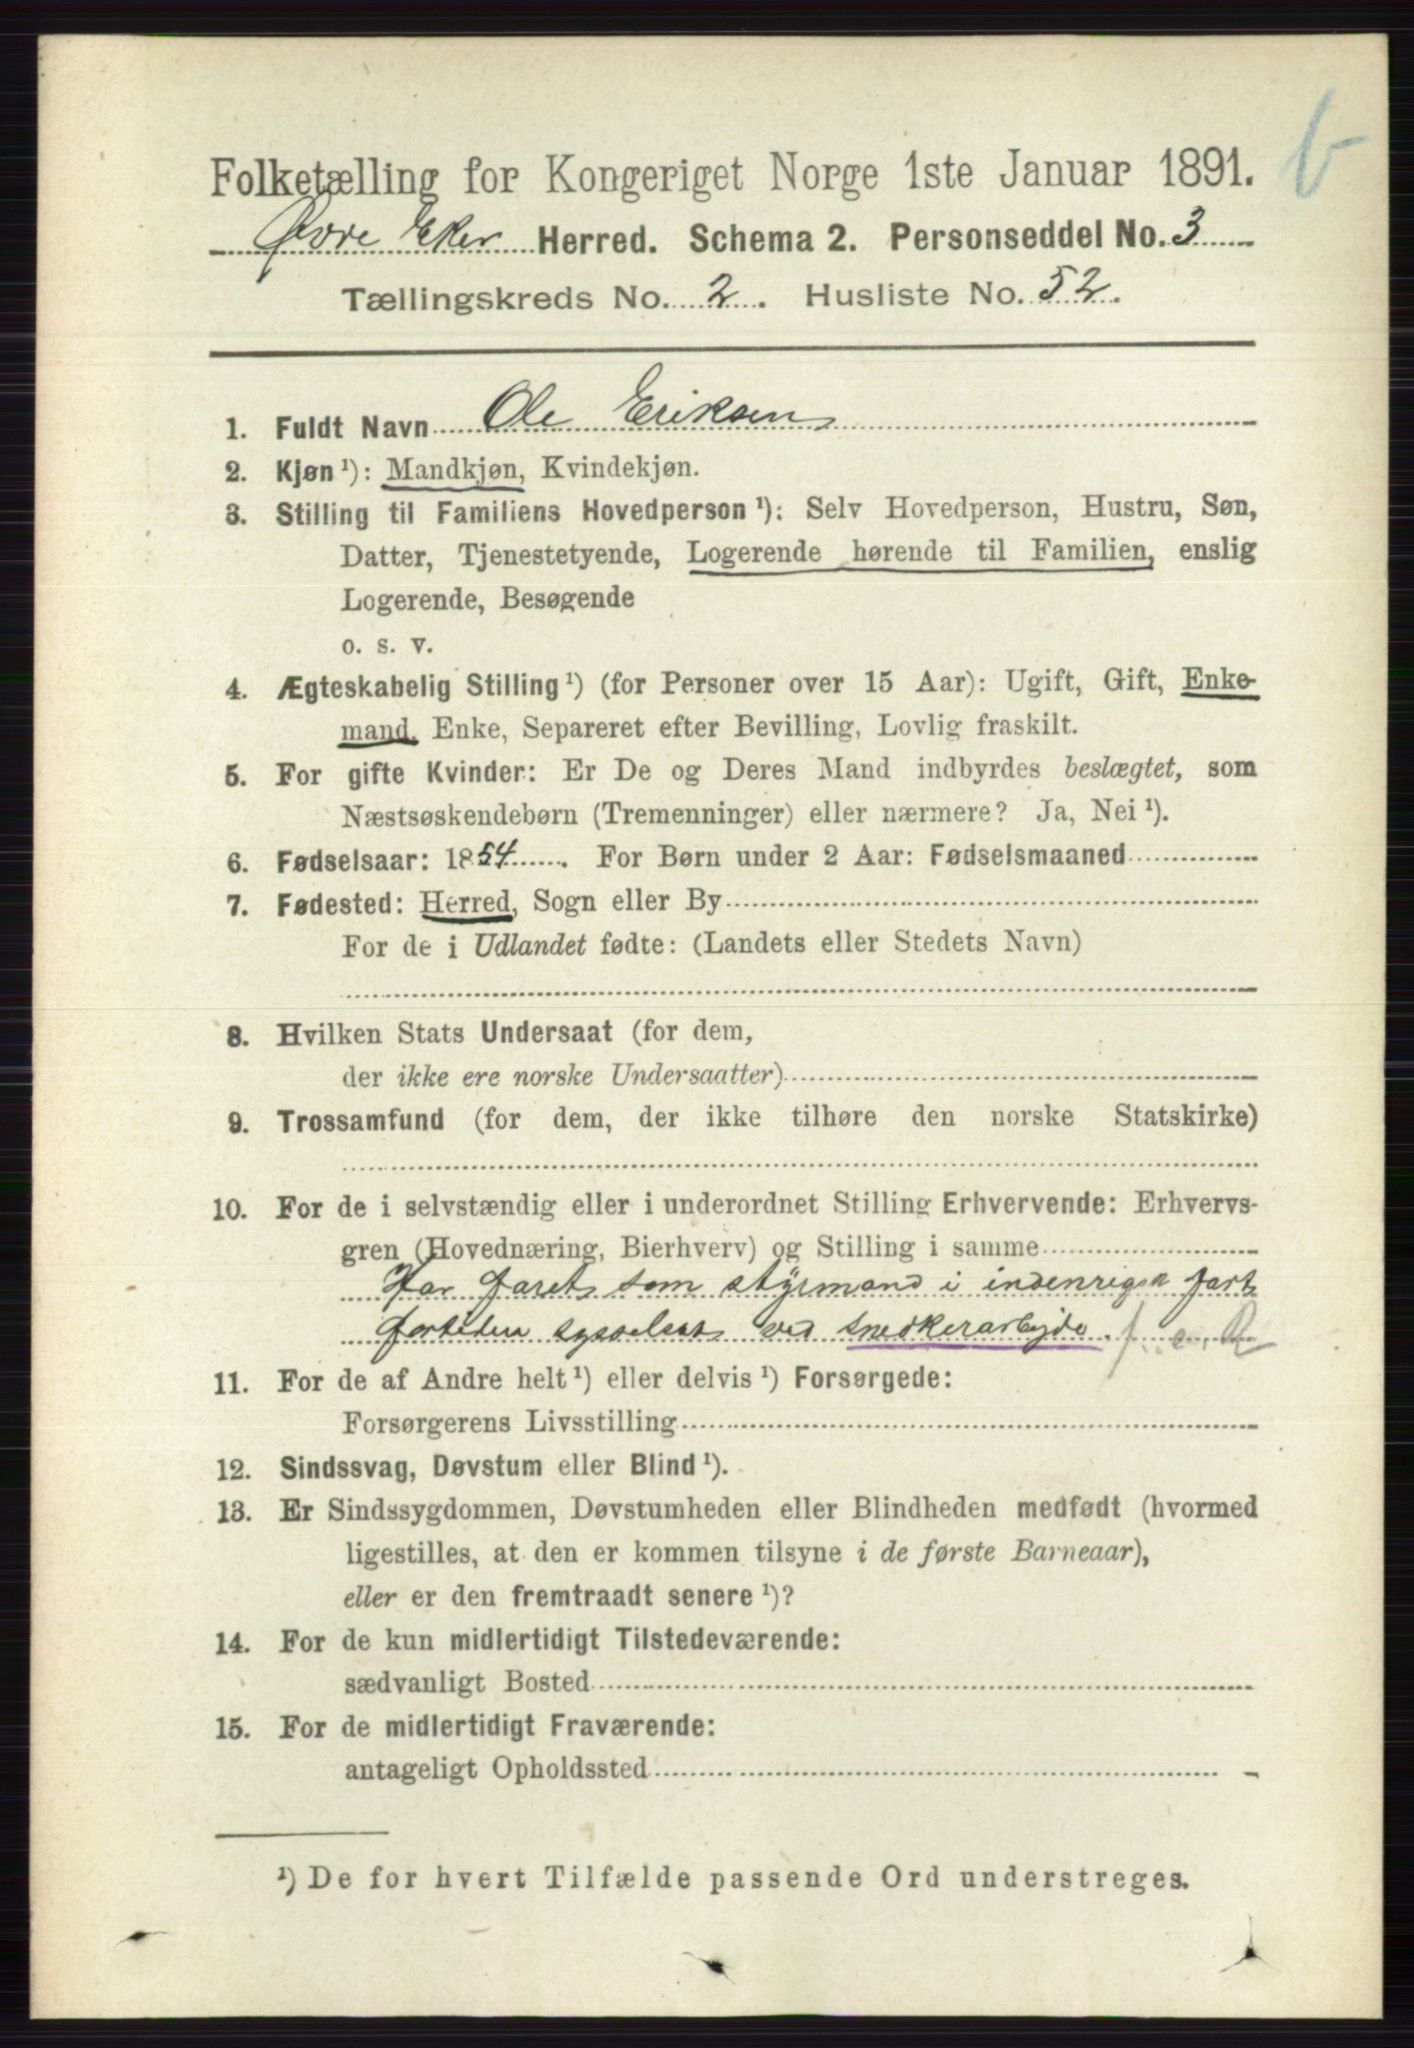 Folketælling for Kongeriget Norge 1ste Januar 1891.
Øvre Eker Herred. Schema 2. Personseddel No. 3
Tællingskreds No. 2. Husliste No. 52.
1. Fuldt Navn Ole Eriksen
2. Kjøn ¹): Mandkjøn, Kvindekjøn.
3. Stilling til Familiens Hovedperson ¹): Selv Hovedperson, Hustru, Søn,
Datter, Tjenestetyende, Logerende hørende til Familien, enslig
Logerende, Besøgende
o. s. v.
4. Ægteskabelig Stilling ¹) (for Personer over 15 Aar): Ugift, Gift, Enke-
mand, Enke, Separeret efter Bevilling, Lovlig fraskilt.
5. For gifte Kvinder: Er De og Deres Mand indbyrdes beslægtet, som
Næstsøskendebørn (Tremenninger) eller nærmere? Ja, Nei ¹).
6. Fødselsaar: 1854. For Børn under 2 Aar: Fødselsmaaned
7. Fødested: Herred, Sogn eller By
For de i Udlandet fødte: (Landets eller Stedets Navn)
8. Hvilken Stats Undersaat (for dem,
der ikke ere norske Undersaatter)
9. Trossamfund (for dem, der ikke tilhøre den norske Statskirke)
10. For de i selvstændig eller i underordnet Stilling Erhvervende: Erhvervs-
gren (Hovednæring, Bierhverv) og Stilling i samme
Har faret som styrmand i indenrigsk fart
fortiden sysselsat ved snedkerarbejde.
11. For de af Andre helt ¹) eller delvis ¹) Forsørgede:
Forsørgerens Livsstilling
12. Sindssvag, Døvstum eller Blind ¹).
13. Er Sindssygdommen, Døvstumheden eller Blindheden medfødt (hvormed
ligestilles, at den er kommen tilsyne i de første Barneaar),
eller er den fremtraadt senere ¹)?
14. For de kun midlertidigt Tilstedeværende:
sædvanligt Bosted
15. For de midlertidigt Fraværende:
antageligt Opholdssted
¹) De for hvert Tilfælde passende Ord understreges.